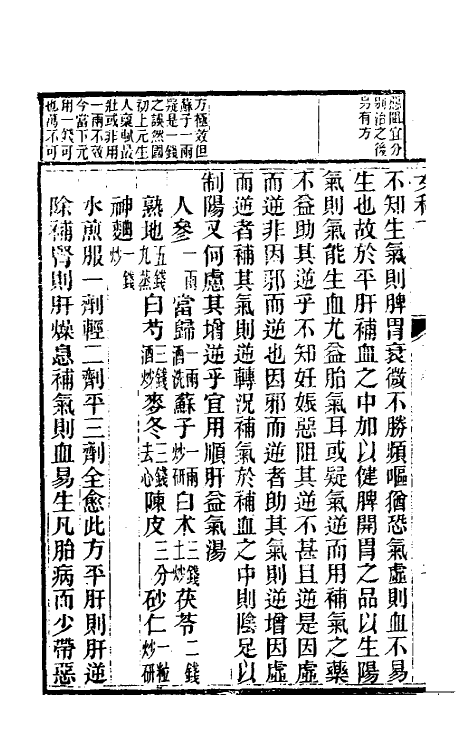 惡阻宜分
別治之後
另有方
方極效但
蘇子一兩
疑是一錢
之誤然國
初上元生
人稟賦最
壯或非用
一兩不效
今當下元
用一錢可
也萬不可
女科
不知生氣則脾胃衰微不勝頻嘔猶恐氣虛則血不易
生也故於平肝補血之中加以健脾開胃之品以生陽
氣則氣能生血尤益胎氣耳或疑氣逆而用補氣之藥
不益助其逆乎不知妊娠惡阻其逆不甚且逆是因虛
而逆非因邪而逆也因邪而逆者助其氣則逆增因虛
而逆者補其氣則逆轉況補氣於補血之中則陰足以
制陽又何慮其增逆乎宜用順肝益氣湯
人參一兩當歸一兩酒洗蘇子一兩炒研白朮三錢土炒茯苓二錢
熟地五錢九蒸白芍三錢酒炒麥冬三錢去心陳皮三分砂仁一粒炒研
神麯一錢炒
水煎服一劑輕二劑平三劑全愈此方平肝則肝逆
除補腎則肝燥息補氣則血易生凡胎病而少帶惡